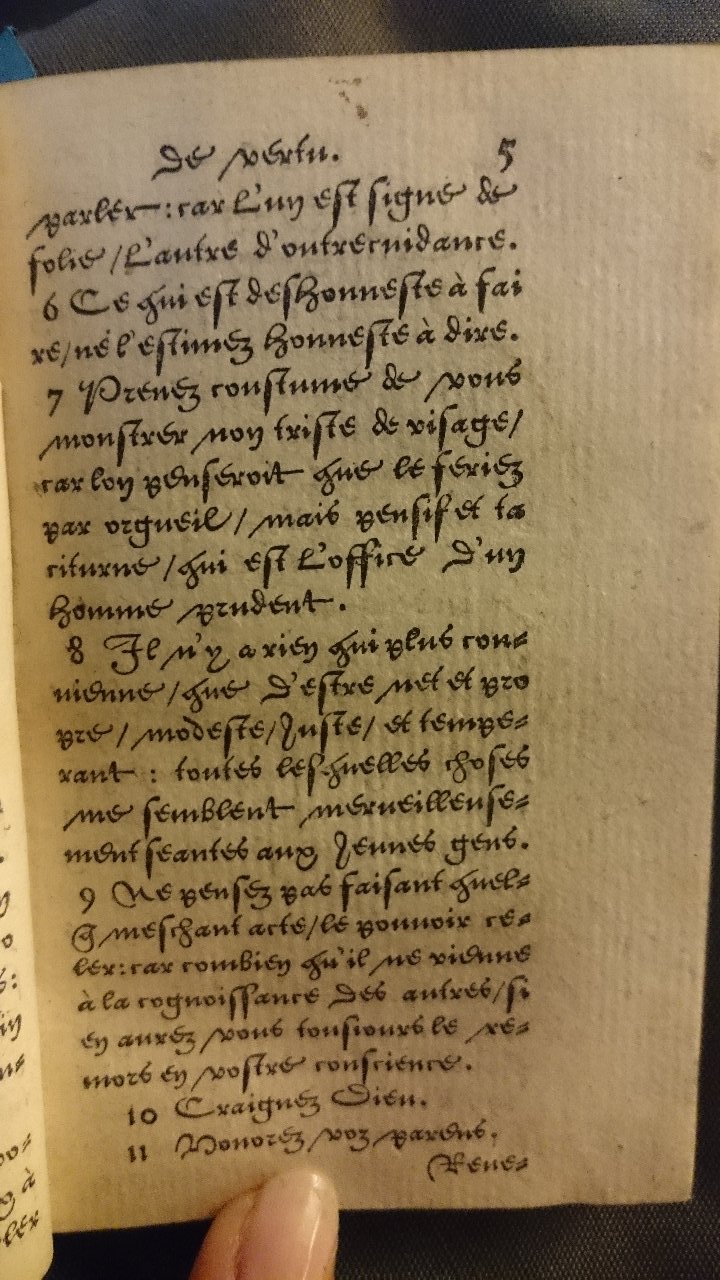 de vertu. 5
parler: car l'un est signe de
folie / l'autre d'outrecuidance.
6 Ce qui est deshonneste à fai
re, ne l'estimez honneste à dire.
7 Prenez coustume de vous
monstrer non triste de visage,
car lon penseroit que le feriez
par orgueil, mais pensif et ta
citurne, qui est l'office d'un
homme prudent.
8 Il n'y a rien qui plus con-
uienne, que d'estre net et pro
pre, modeste, Juste, et tempe-
rant : toutes lesquelles choses
me semblent merueilleuse-
ment seantes aux Jeunes gens.
9 Ne pensez pas faisant quel-
q meschant acte, le pouuoir ce-
ler: car combien qu'il ne vienne
à la cognoissance des autres, si
en aurez vous tousiours le re-
mors en vostre conscience.
10 Craignez Dieu.
11 Honorez voz parens.
Reue-